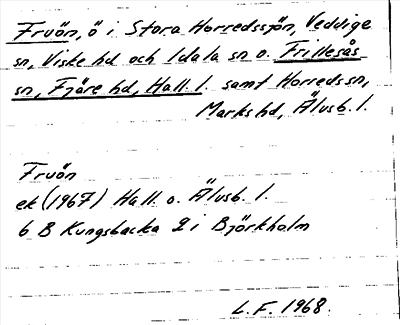 Fruön, ö i Stora Horredssjön, Veddige
sn, Viske hd och Idala sn o. Frillesås
sn, Fjäre hd, Hall. l. samt Horreds sn,
Marks hd, Älvsb. l.
Fruön
ek (1967) Hall. o. Älvsb. l.
6 B Kungsbacka 2 i Björkholm
L.F. 1968.